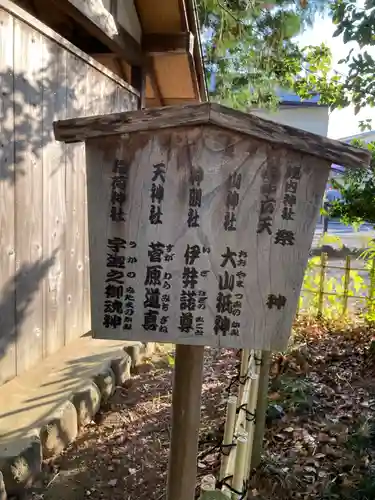 境内神社
祭神
山神社
大山祇神
おおやまつみのかみ
神明社
伊弉諾尊
いざなぎのみこと
天神社
菅原道真
すがわらみちざね
稲荷神社
宇迦之御魂神
うかのみたまのかみ